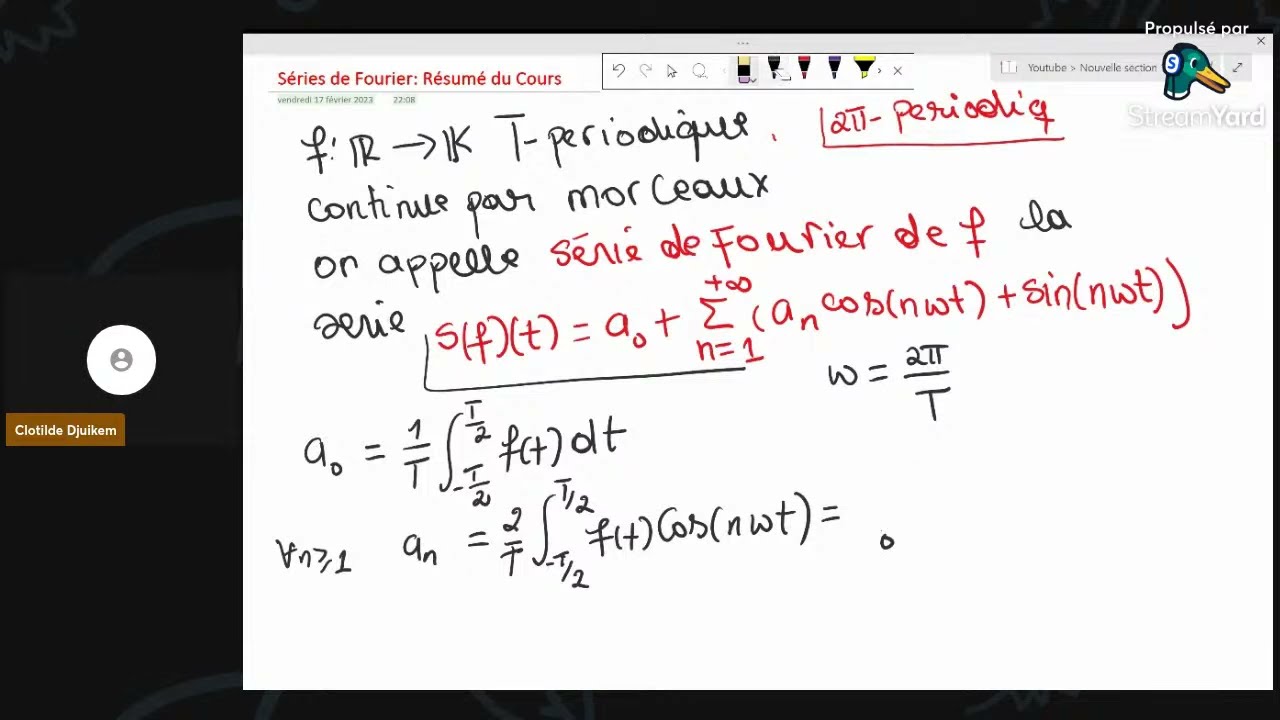 Propulsé par
StreamYard
Séries de Fourier: Résumé du Cours
vendredi 17 février 2023 22:08
Youtube > Nouvelle section
f: ℝ → 𝕂 T-periodique. 2π-periodiq
continue par morceaux
on appelle série de Fourier de f la
serie S(f)(t) = a₀ + Σ_{n=1}^{+∞} (aₙ cos(nωt) + sin(nωt))
ω = 2π/T
a₀ = 1/T ∫_{-T/2}^{T/2} f(t) dt
∀n≥1 aₙ = 2/T ∫_{-T/2}^{T/2} f(t) cos(nωt) =
Clotilde Djuikem